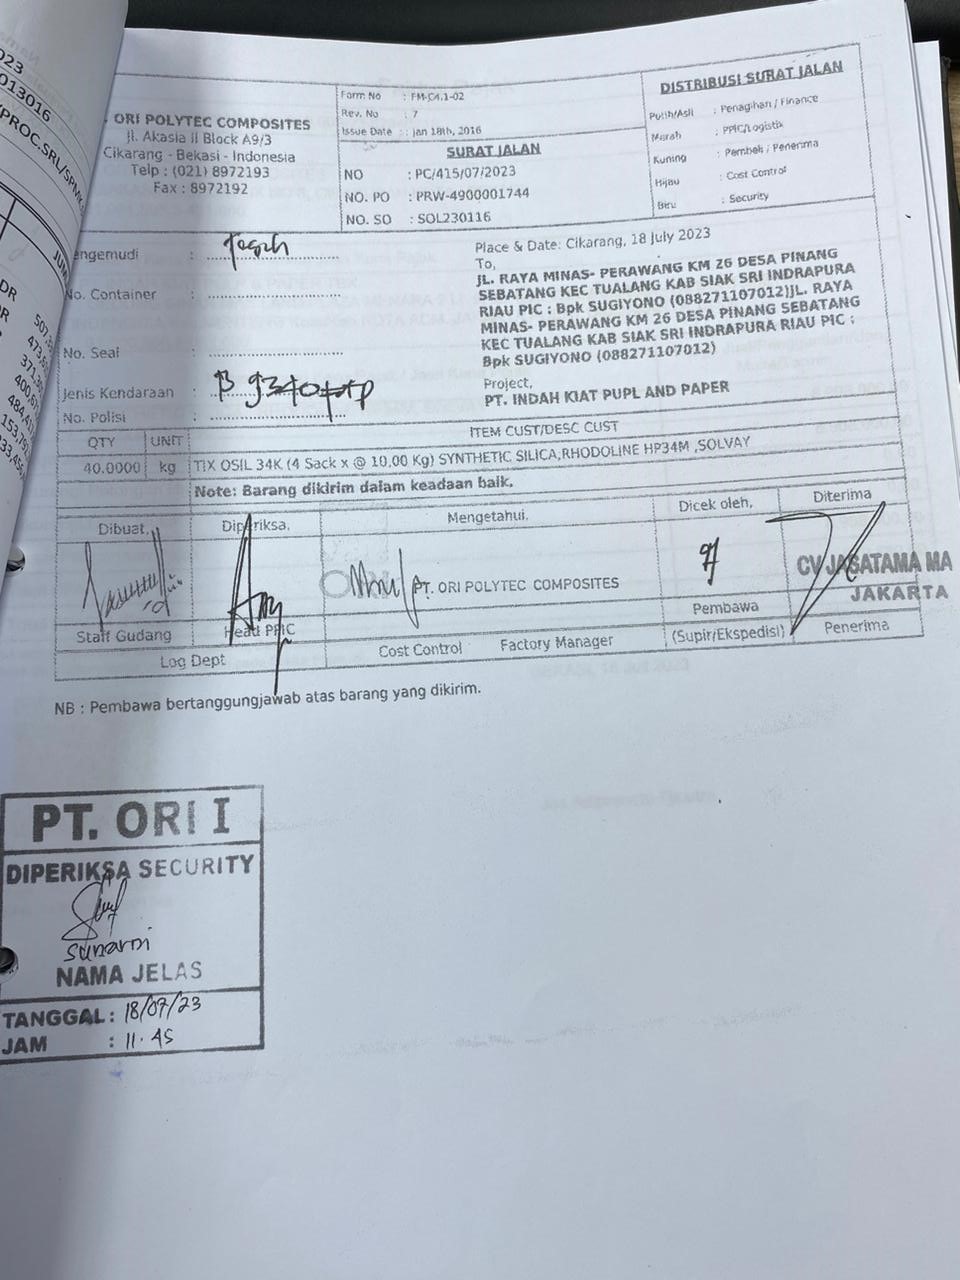 023
013016
/PROC.SRL/SPM
JUM
507.3
473.6
371.3
400.67
484.41
153.79
ORI POLYTEC COMPOSITES
Jl. Akasia II Block A9/3
Cikarang - Bekasi - Indonesia
Telp : (021) 8972193
Fax : 8972192
Form No : FM-C4.1-02
Rev. No : 7
Issue Date : Jan 18th, 2016
SURAT JALAN
NO : PC/415/07/2023
NO. PO : PRW-4900001744
NO. SO : SOL230116
DISTRIBUSI SURAT JALAN
Putih/Asli : Penagihan / Finance
Merah : PPIC/Logistik
Kuning : Pembeli / Penerima
Hijau : Cost Control
Biru : Security
engemudi :
No. Container :
No. Seal :
Jenis Kendaraan :
No. Polisi :
Place & Date: Cikarang, 18 July 2023
To,
JL. RAYA MINAS- PERAWANG KM 26 DESA PINANG
SEBATANG KEC TUALANG KAB SIAK SRI INDRAPURA
RIAU PIC : Bpk SUGIYONO (088271107012)JL. RAYA
MINAS- PERAWANG KM 26 DESA PINANG SEBATANG
KEC TUALANG KAB SIAK SRI INDRAPURA RIAU PIC :
Bpk SUGIYONO (088271107012)
Project,
PT. INDAH KIAT PUPL AND PAPER
QTY UNIT ITEM CUST/DESC CUST
40.0000 kg TIX OSIL 34K (4 Sack x @ 10,00 Kg) SYNTHETIC SILICA,RHODOLINE HP34M ,SOLVAY
Note: Barang dikirim dalam keadaan baik.
Dibuat, Diperiksa, Mengetahui, Dicek oleh, Diterima
PT. ORI POLYTEC COMPOSITES
CV JASATAMA MA
JAKARTA
Staff Gudang Head PPIC Cost Control Factory Manager Pembawa
(Supir/Ekspedisi) Penerima
Log Dept
NB : Pembawa bertanggungjawab atas barang yang dikirim.
PT. ORI I
DIPERIKSA SECURITY
sunarni
NAMA JELAS
TANGGAL : 18/07/23
JAM : 11.45